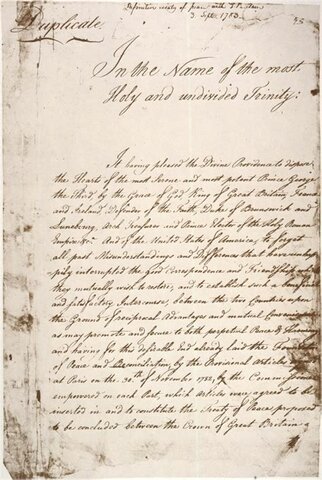 Definitive treaty of peace with G Britain
3 Sept. 1783.
Duplicate.
In the Name of the most
Holy and undivided Trinity:
It having pleased the Divine Providence to dispose
the Hearts of the most Serene and most potent Prince George
the Third, by the Grace of God King of Great Britain, France
and Ireland, Defender of the Faith, Duke of Brunswick and
Lunebourg, Arch Treasurer and Prince Elector of the Holy Roman
Empire &c. And of the United States of America, to forget
all past Misunderstandings and Differences that have unhap-
pily interrupted the good Correspondence and Friendship which
they mutually wish to restore; and to establish such a beneficial
and satisfactory Intercourse between the two Countries upon
the Ground of reciprocal Advantages and mutual Convenience
as may promote and secure to both perpetual Peace & Harmony,
and having for this desirable End already laid the Foundation
of Peace and Reconciliation by the Provisional Articles
at Paris on the 30th of November 1782, by the Commissioners
empowered on each Part, which Articles were agreed to be
inserted in and to constitute the Treaty of Peace proposed
to be concluded between the Crown of Great Britain